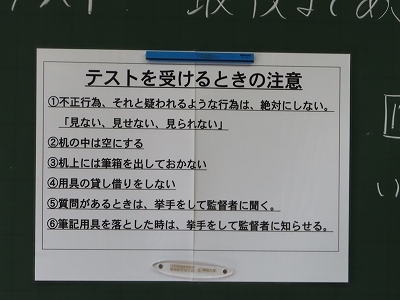 テスト
テストを受けるときの注意
①不正行為、それと疑われるような行為は、絶対にしない。
「見ない、見せない、見られない」
②机の中は空にする
③机上には筆箱を出しておかない
④用具の貸し借りをしない
⑤質問があるときは、挙手をして監督者に聞く。
⑥筆記用具を落とした時は、挙手をして監督者に知らせる。